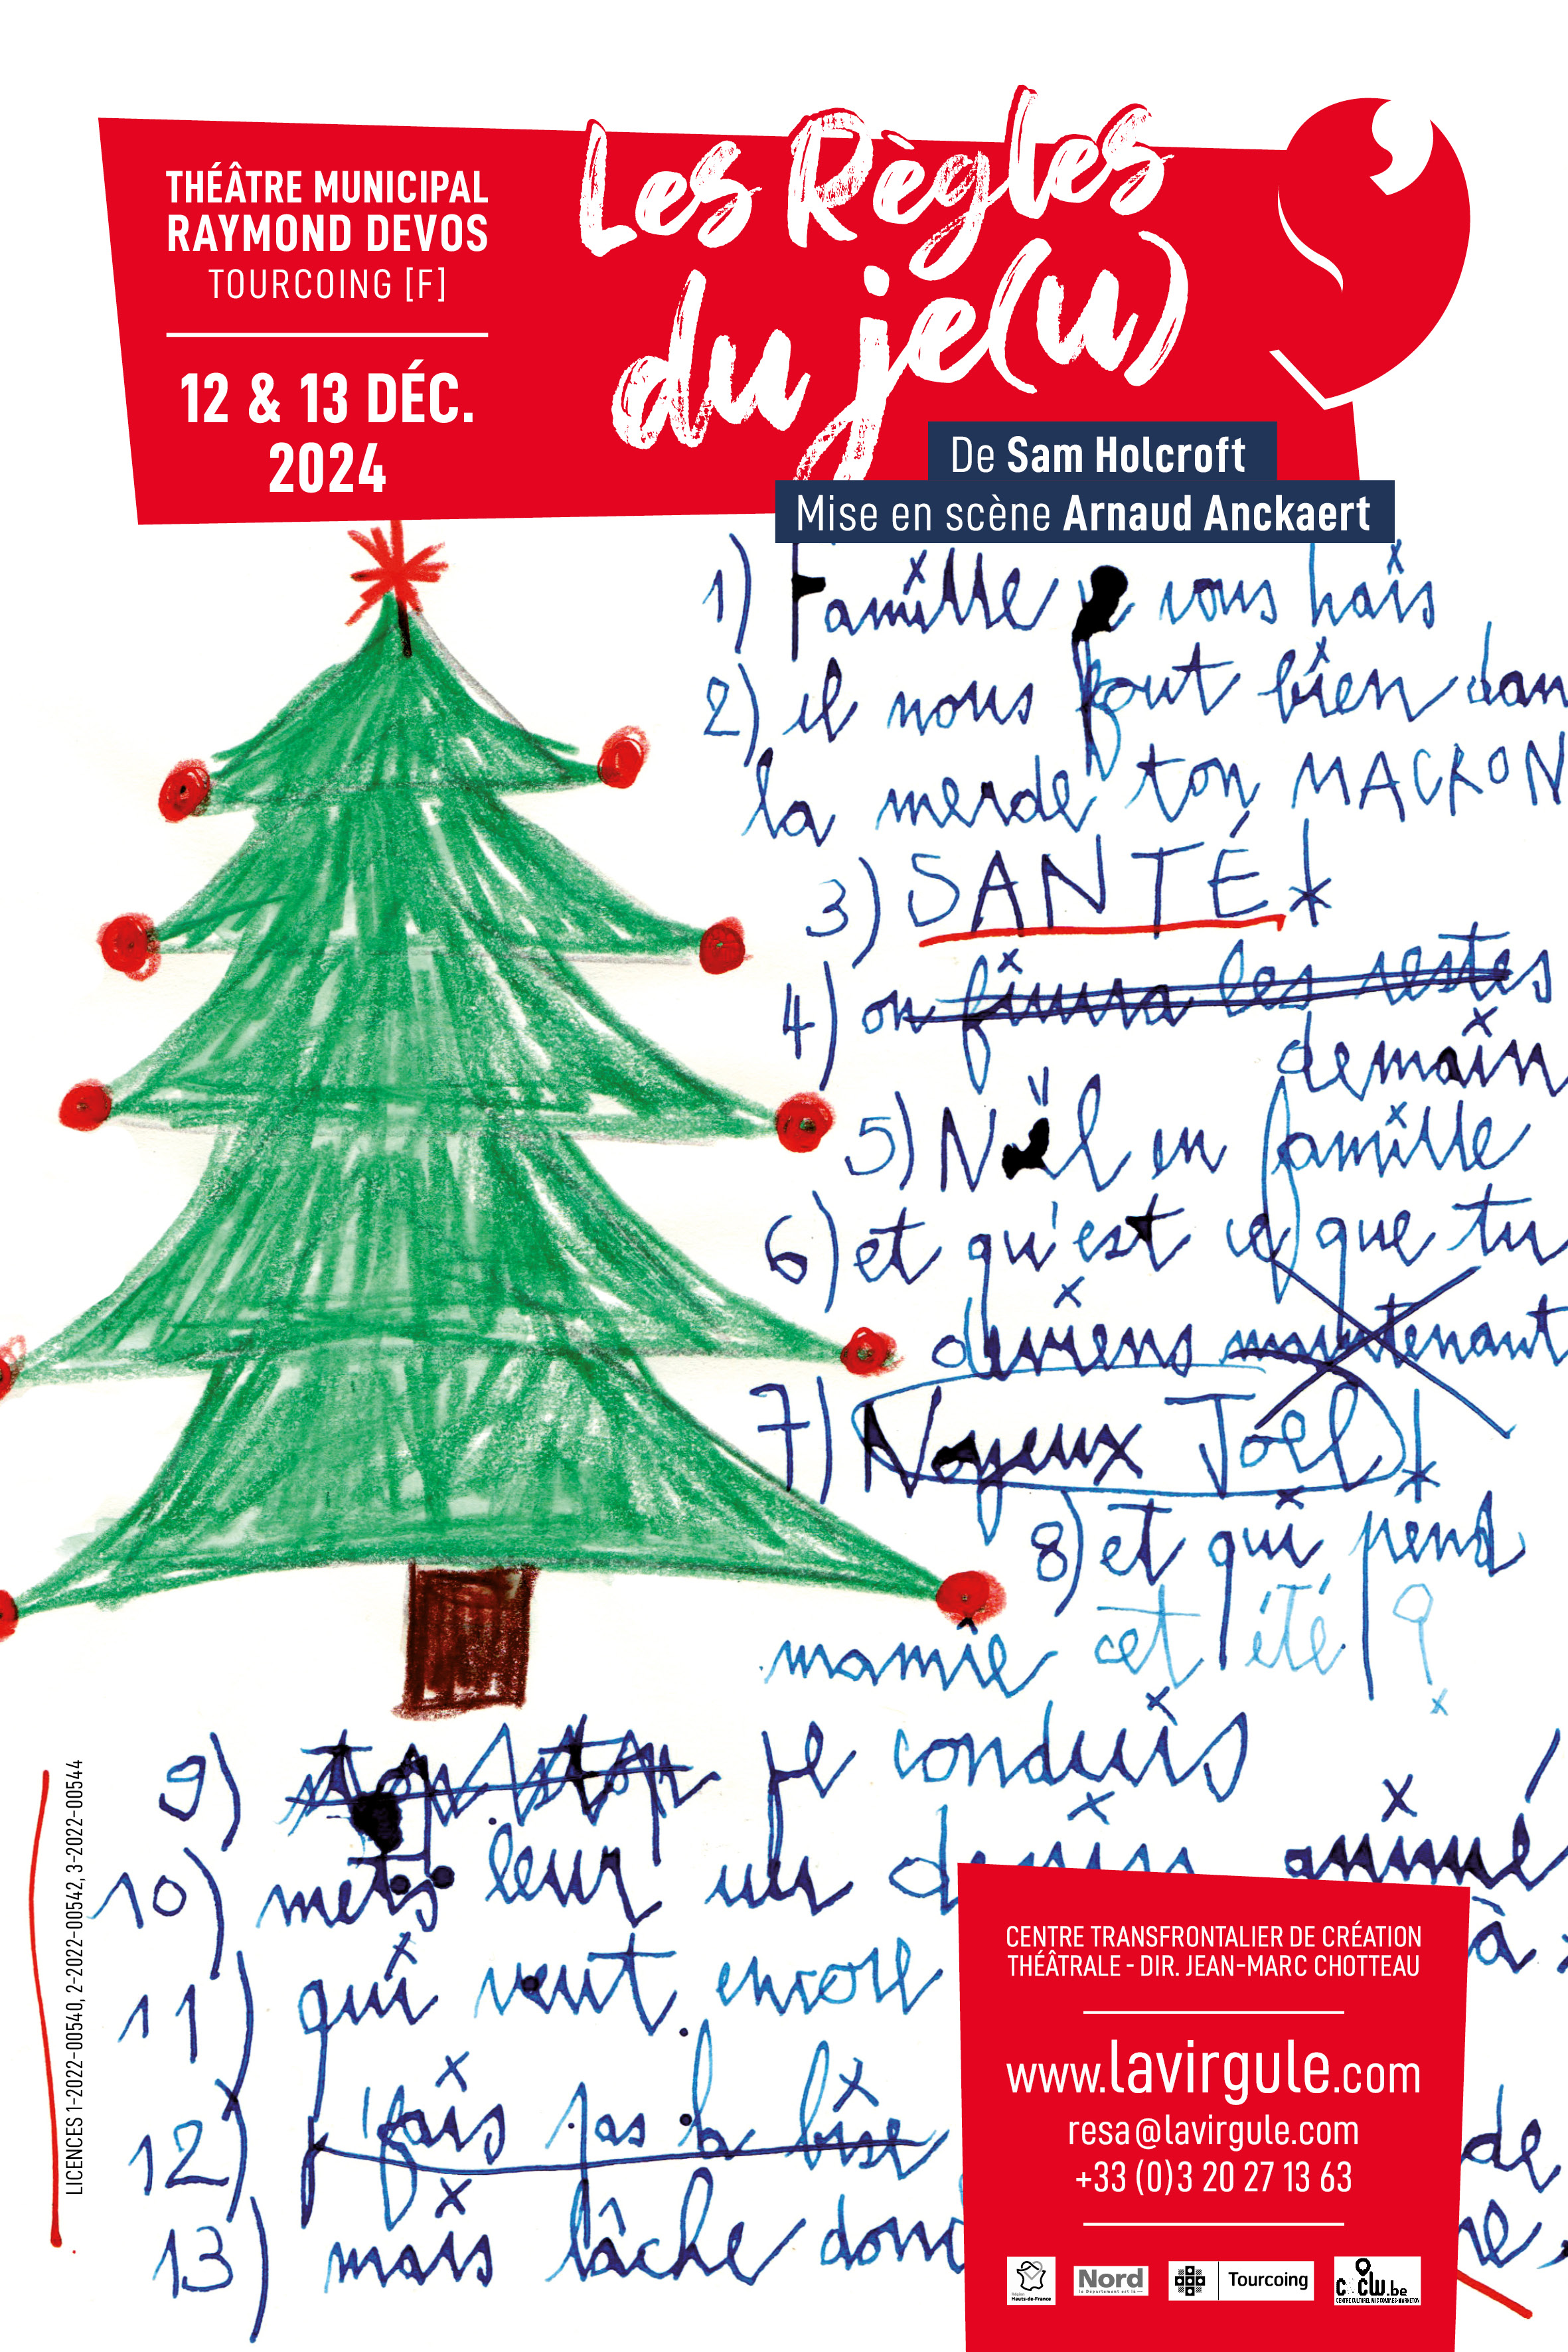 THÉÂTRE MUNICIPAL
RAYMOND DEVOS
TOURCOING [F]
12 & 13 DÉC.
2024
Les Règles
du je(u)
De Sam Holcroft
Mise en scène Arnaud Anckaert
1) Famille je vous hais
2) il nous fout bien dan
la merde ton MACRON
3) SANTÉ !
4) on finira les restes
demain
5) Noël en famille
6) et qu'est ce que tu
deviens maintenant
7) Noyeux Joël !
8) et qui prend
mamie cet été ?
9) stop stop je conduis
10) mets leur un dessin animé
11) qui veut encore
à
12) j'fais pas la bise
de
13) mais lâche donc
LICENCES 1-2022-00540, 2-2022-00542, 3-2022-00544
CENTRE TRANSFRONTALIER DE CRÉATION
THÉÂTRALE - DIR. JEAN-MARC CHOTTEAU
www.lavirgule.com
resa@lavirgule.com
+33 (0)3 20 27 13 63
Région
Hauts-de-France
Nord
le Département est là
Tourcoing
.be